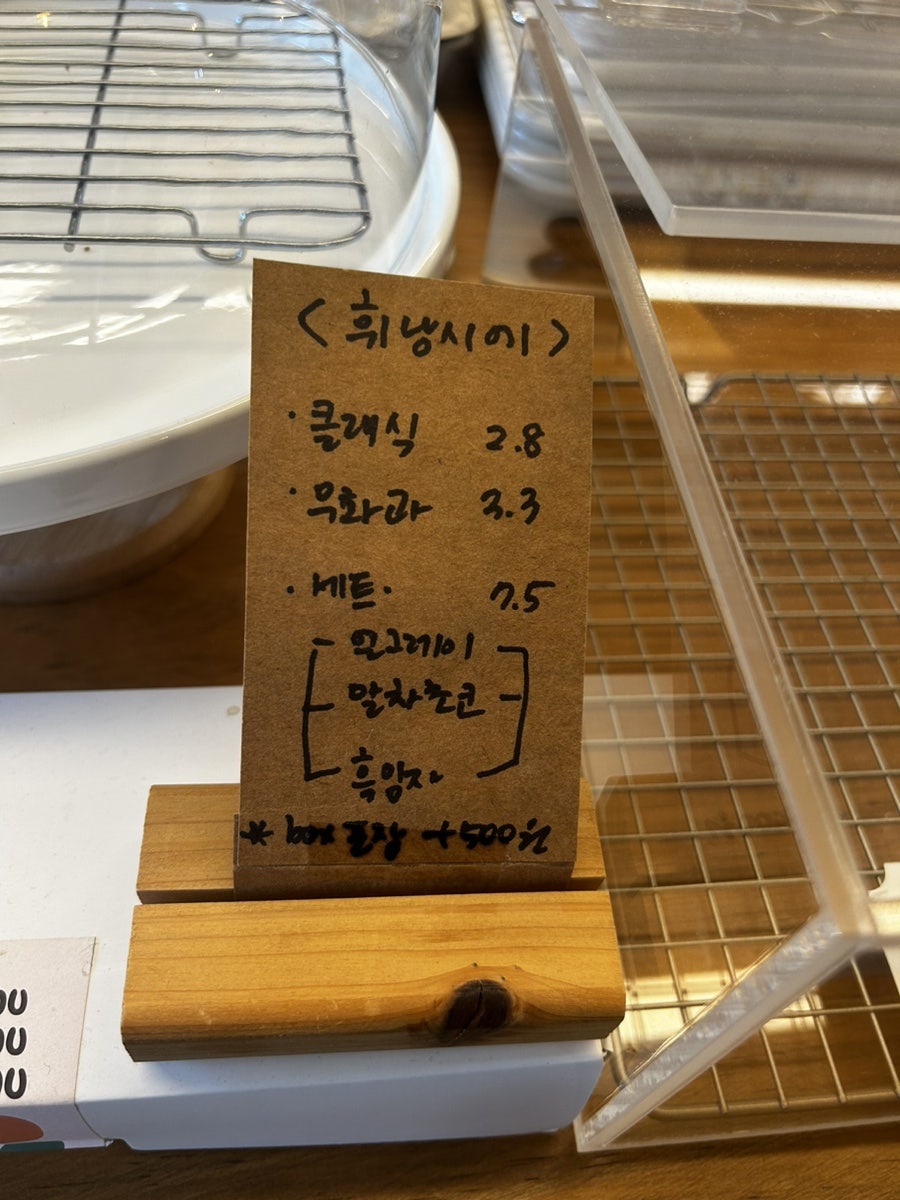 <휘낭시에>
· 클래식 2.8
· 무화과 3.3
· 세트· 7.5
- 얼그레이
- 말차초코
- 흑임자
* box포장 +500원
OU
OU
OU